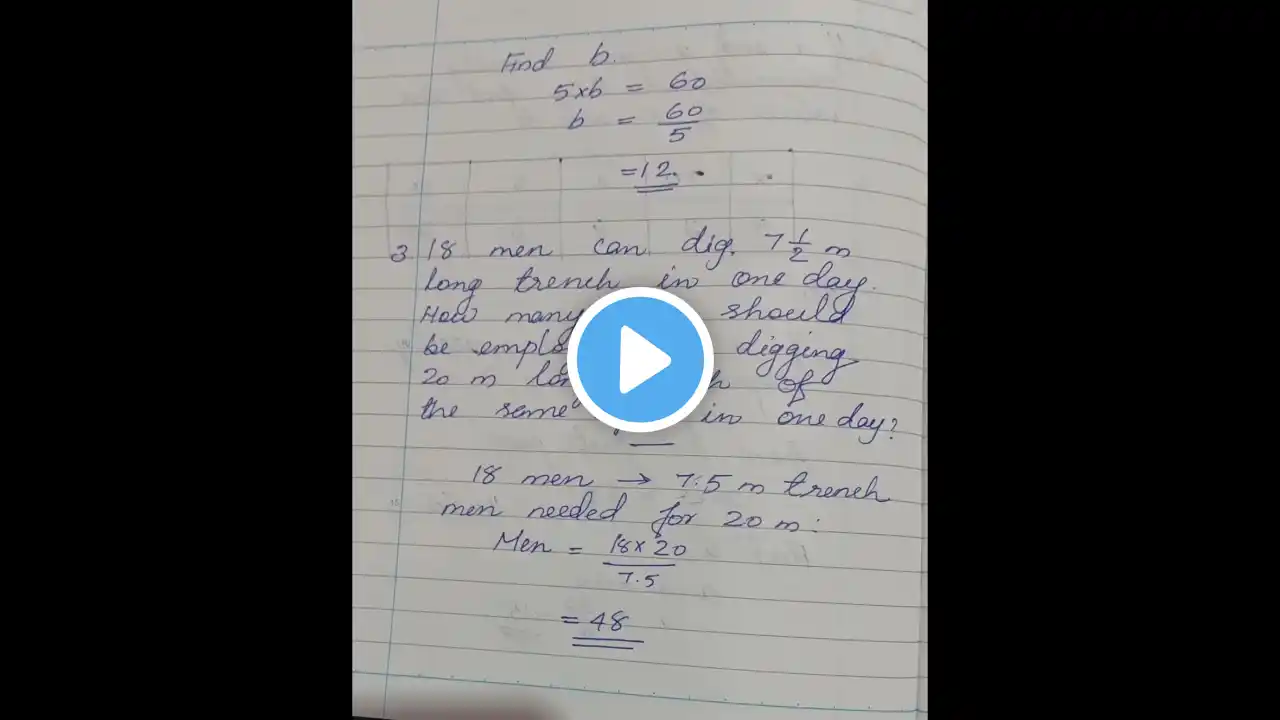 Find b.
5×b = 60
b = 60/5
= 12.
3. 18 men can dig. 7 1/2 m
long trench in one day.
How many should
be emplo digging
20 m lo of
the same in one day?
18 men → 7.5 m trench
men needed for 20 m:
Men = 18×20/7.5
= 48